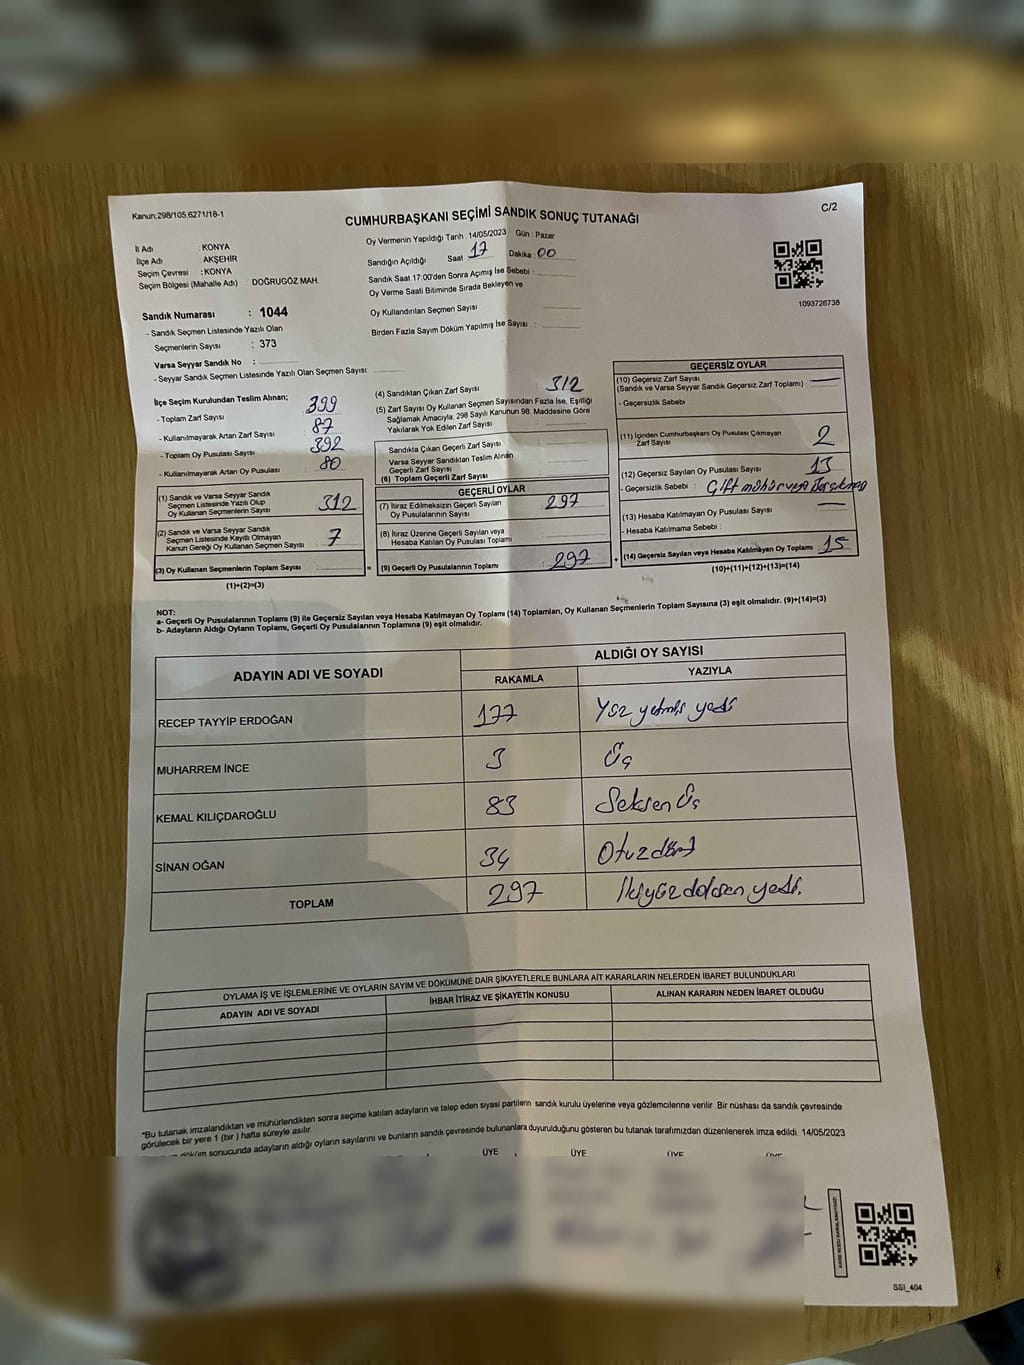 Kanun;298/105,6271/18-1
CUMHURBAŞKANI SEÇİMİ SANDIK SONUÇ TUTANAĞI
C/2
İl Adı : KONYA
İlçe Adı : AKŞEHİR
Seçim Çevresi : KONYA
Seçim Bölgesi (Mahalle Adı) DOĞRUGÖZ MAH.
Oy Vermenin Yapıldığı Tarih : 14/05/2023 Gün : Pazar
Sandığın Açıldığı Saat : 17 Dakika : 00
Sandık Saat 17:00'den Sonra Açmış İse Sebebi :
Oy Verme Saati Bitiminde Sırada Bekleyen ve
Oy Kullandırılan Seçmen Sayısı
Birden Fazla Sayım Döküm Yapılmış İse Sayısı :
1093726738
Sandık Numarası : 1044
- Sandık Seçmen Listesinde Yazılı Olan
Seçmenlerin Sayısı : 373
Varsa Seyyar Sandık No :
- Seyyar Sandık Seçmen Listesinde Yazılı Olan Seçmen Sayısı:
İlçe Seçim Kurulundan Teslim Alınan;
- Toplam Zarf Sayısı 399
- Kullanılmayarak Artan Zarf Sayısı 87
- Toplam Oy Pusulası Sayısı 392
- Kullanılmayarak Artan Oy Pusulası 80
(1) Sandık ve Varsa Seyyar Sandık
Seçmen Listesinde Yazılı Olup
Oy Kullanan Seçmenlerin Sayısı 312
(2) Sandık ve Varsa Seyyar Sandık
Seçmen Listesinde Kayıtlı Olmayan
Kanun Gereği Oy Kullanan Seçmen Sayısı 7
(3) Oy Kullanan Seçmenlerin Toplam Sayısı =
(1)+(2)=(3)
(4) Sandıktan Çıkan Zarf Sayısı 312
(5) Zarf Sayısı Oy Kullanan Seçmen Sayısından Fazla İse, Eşitliği
Sağlamak Amacıyla, 298 Sayılı Kanunun 98. Maddesine Göre
Yakılarak Yok Edilen Zarf Sayısı :
Sandıkta Çıkan Geçerli Zarf Sayısı
Varsa Seyyar Sandıktan Teslim Alınan
Geçerli Zarf Sayısı
(6) Toplam Geçerli Zarf Sayısı
GEÇERLİ OYLAR
(7) İtiraz Edilmeksizin Geçerli Sayılan
Oy Pusulalarının Sayısı 297
(8) İtiraz Üzerine Geçerli Sayılan veya
Hesaba Katılan Oy Pusulası Toplamı
(9) Geçerli Oy Pusulalarının Toplamı : 297 +
GEÇERSİZ OYLAR
(10) Geçersiz Zarf Sayısı
(Sandık ve Varsa Seyyar Sandık Geçersiz Zarf Toplamı)
- Geçersizlik Sebebi
(11) İçinden Cumhurbaşkanı Oy Pusulası Çıkmayan
Zarf Sayısı 2
(12) Geçersiz Sayılan Oy Pusulası Sayısı 13
- Geçersizlik Sebebi : Çift mühür veya
(13) Hesaba Katılmayan Oy Pusulası Sayısı
- Hesaba Katılmama Sebebi :
(14) Geçersiz Sayılan veya Hesaba Katılmayan Oy Toplamı 15
(10)+(11)+(12)+(13)=(14)
NOT:
a- Geçerli Oy Pusulalarının Toplamı (9) ile Geçersiz Sayılan veya Hesaba Katılmayan Oy Toplamı (14) Toplamları, Oy Kullanan Seçmenlerin Toplam Sayısına (3) eşit olmalıdır. (9)+(14)=(3)
b- Adayların Aldığı Oyların Toplamı, Geçerli Oy Pusulalarının Toplamına (9) eşit olmalıdır.
ADAYIN ADI VE SOYADI ALDIĞI OY SAYISI
RAKAMLA YAZIYLA
RECEP TAYYİP ERDOĞAN 177 Yüz yetmiş yedi
MUHARREM İNCE 3 Üç
KEMAL KILIÇDAROĞLU 83 Seksen üç
SİNAN OĞAN 34 Otuzdört
TOPLAM 297 İkiyüz doksan yedi.
OYLAMA İŞ VE İŞLEMLERİNE VE OYLARIN SAYIM VE DÖKÜMÜNE DAİR ŞİKAYETLERLE BUNLARA AİT KARARLARIN NELERDEN İBARET BULUNDUKLARI
ADAYIN ADI VE SOYADI İHBAR İTİRAZ VE ŞİKAYETİN KONUSU ALINAN KARARIN NEDEN İBARET OLDUĞU
"Bu tutanak imzalandıktan ve mühürlendikten sonra seçime katılan adayların ve talep eden siyasi partilerin sandık kurulu üyelerine veya gözlemcilerine verilir. Bir nüshası da sandık çevresinde
görülecek bir yere 1 (bir) hafta süreyle asılır.
döküm sonucunda adayların aldığı oyların sayılarını ve bunların sandık çevresinde bulunanlara duyurulduğunu gösteren bu tutanak tarafımızdan düzenlenerek imza edildi. 14/05/2023
ÜYE ÜYE ÜYE ÜYE
SSI_404